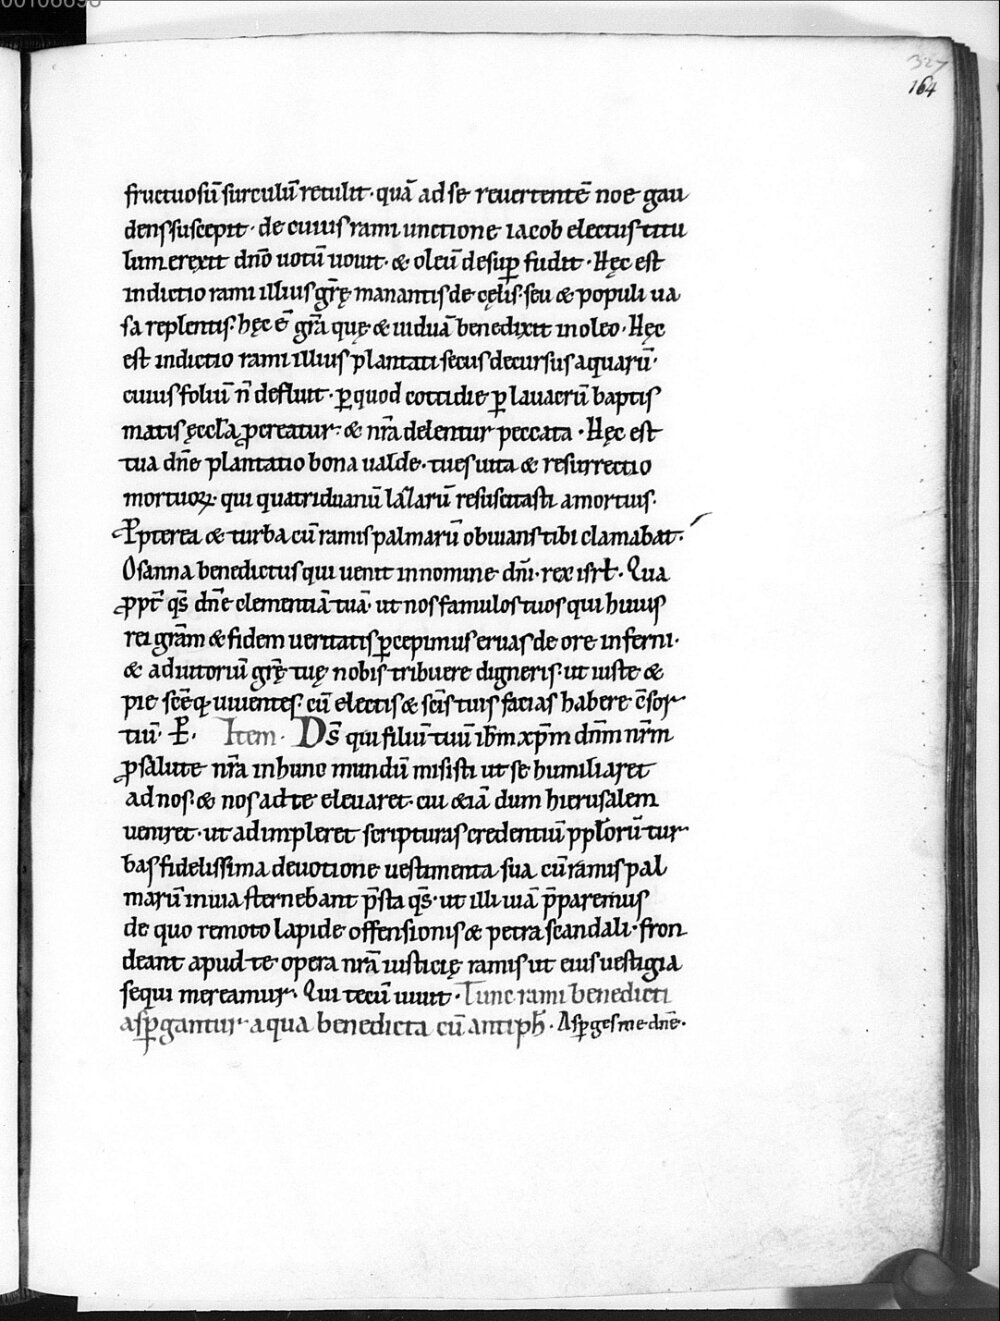 00106698
327
164
fructuosū surculū retulit · quā ad se reuertentē noe gau
dens suscepit · de cuius rami unctione iacob electus titu
lum erexit dn̄o uotū uouit · & oleū desup̱ fudit · Hęc est
indictio rami illius gr̄ę manantis de cęlis · seu & populi ua
sa replentis · hęc ē gr̄a quę & uiduā benedixit in oleo · Hęc
est indictio rami illius plantati secus decursus aquarū ·
cuius foliū n̄ defluit · p̱ quod cottidie p̱ lauacrū baptis
matis ęccl̄a ꝓcreatur · & nr̄a delentur peccata · Hęc est
tua dn̄e plantatio bona ualde · tu es uita & resurrectio
mortuoꝝ qui quatriduanū laz̄arū resuscitasti a mortuis ·
Ꝓpterea & turba cū ramis palmarū obuians tibi clamabat ·
Osanna benedictus qui uenit in nomine dn̄i · rex isrł · Qua
ꝓpt̄ qs̄ dn̄e clementiā tuā · ut nos famulos tuos qui huius
rei grām & fidem ueritatis p̱cepimus eruas de ore inferni ·
& adiutoriū gr̄ę tuę nobis tribuere digneris · ut iuste &
pie sc̄ēq · uiuentes · cū electis & sc̄is tuis facias habere c̄sor
tiū · P̱ · Item · Ds̄ qui filiū tuū ih̄m xp̄m dn̄m nr̄m
ꝓ salute nr̄a in hunc mundū misisti ut se humiliaret
ad nos · & nos ad te eleuaret · cui &iā dum hierusalem
ueniret · ut adimpleret scripturas credentiū pp̄łorū tur
bas fidelissima deuotione uestimenta sua cū ramis pal
marū in uia sternebant p̄sta qs̄ · ut illi uiā p̄paremus
de quo remoto lapide offensionis & petra scandali · fron
deant apud te opera nr̄a iusticię ramis ut eius uestigia
sequi mereamur · Qui tecū uiuit · Tunc rami benedicti
asp̱gantur aqua benedicta cū antiph̄ · Asp̱ges me dn̄e ·